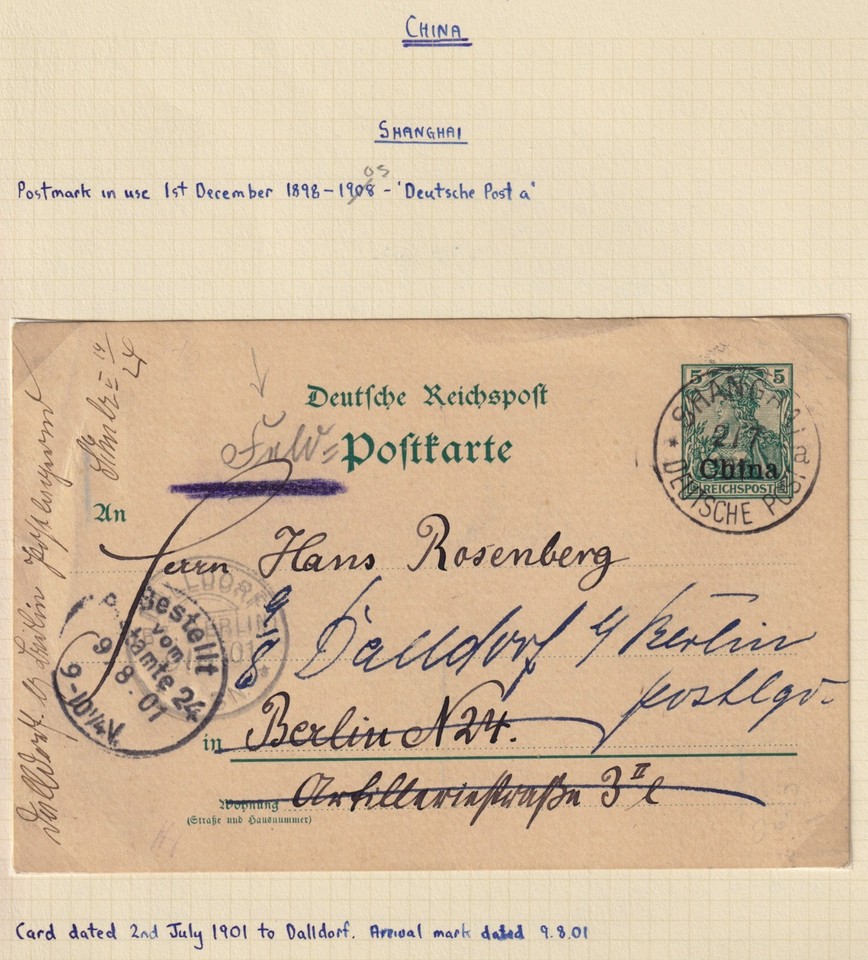 CHINA
SHANGHAI
05
Postmark in use 1st December 1898 - 1908 - 'Deutsche Post a'
Deutsche Reichspost
Feld=
Postkarte
5 5
China
REICHSPOST
SHANGHAI
2/7
a
DEUTSCHE POST
An
Herrn Hans Rosenberg
9/8
Dalldorf b/ Berlin
postlgd.
in Berlin N 24.
Artilleriestraße 3 II l
Wohnung
(Straße und Hausnummer)
Bestellt
vom
Postamte 24
9.8.01
9-10¼V.
DALLDORF
BERLIN
Dalldorf b Berlin postlagernd
Card dated 2nd July 1901 to Dalldorf. Arrival mark dated 9.8.01